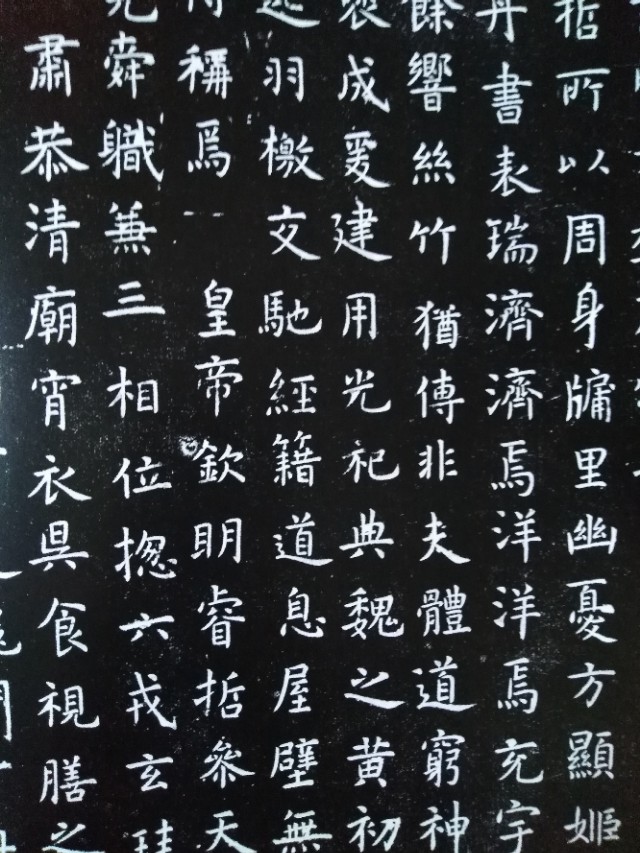 哲所以周身牖里幽憂方顯姬
丹書表瑞濟濟焉洋洋焉充宇
餘響絲竹猶傳非夫體道窮神
褒成爰建用光祀典魏之黄初
起羽檄交馳經籍道息屋壁無
得稱焉 皇帝欽明睿哲參天
堯舜職兼三相位揔六戎玄珪
肅恭清廟宵衣昃食視膳之